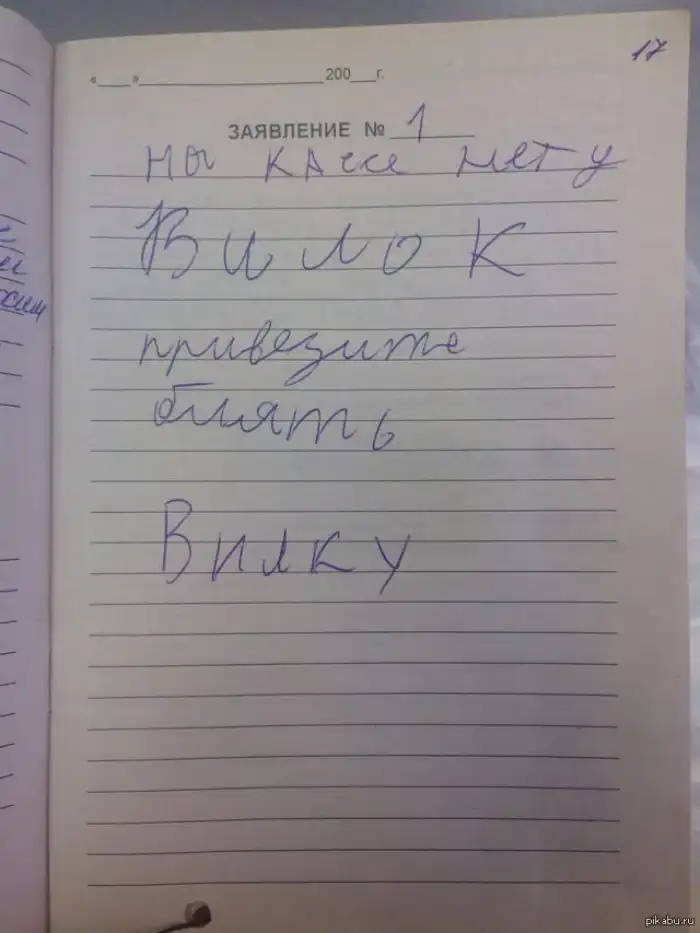 17
« » 200 г.
ЗАЯВЛЕНИЕ № 1
на кассе нету
Вилок
привезите
блять
Вилку
pikabu.ru